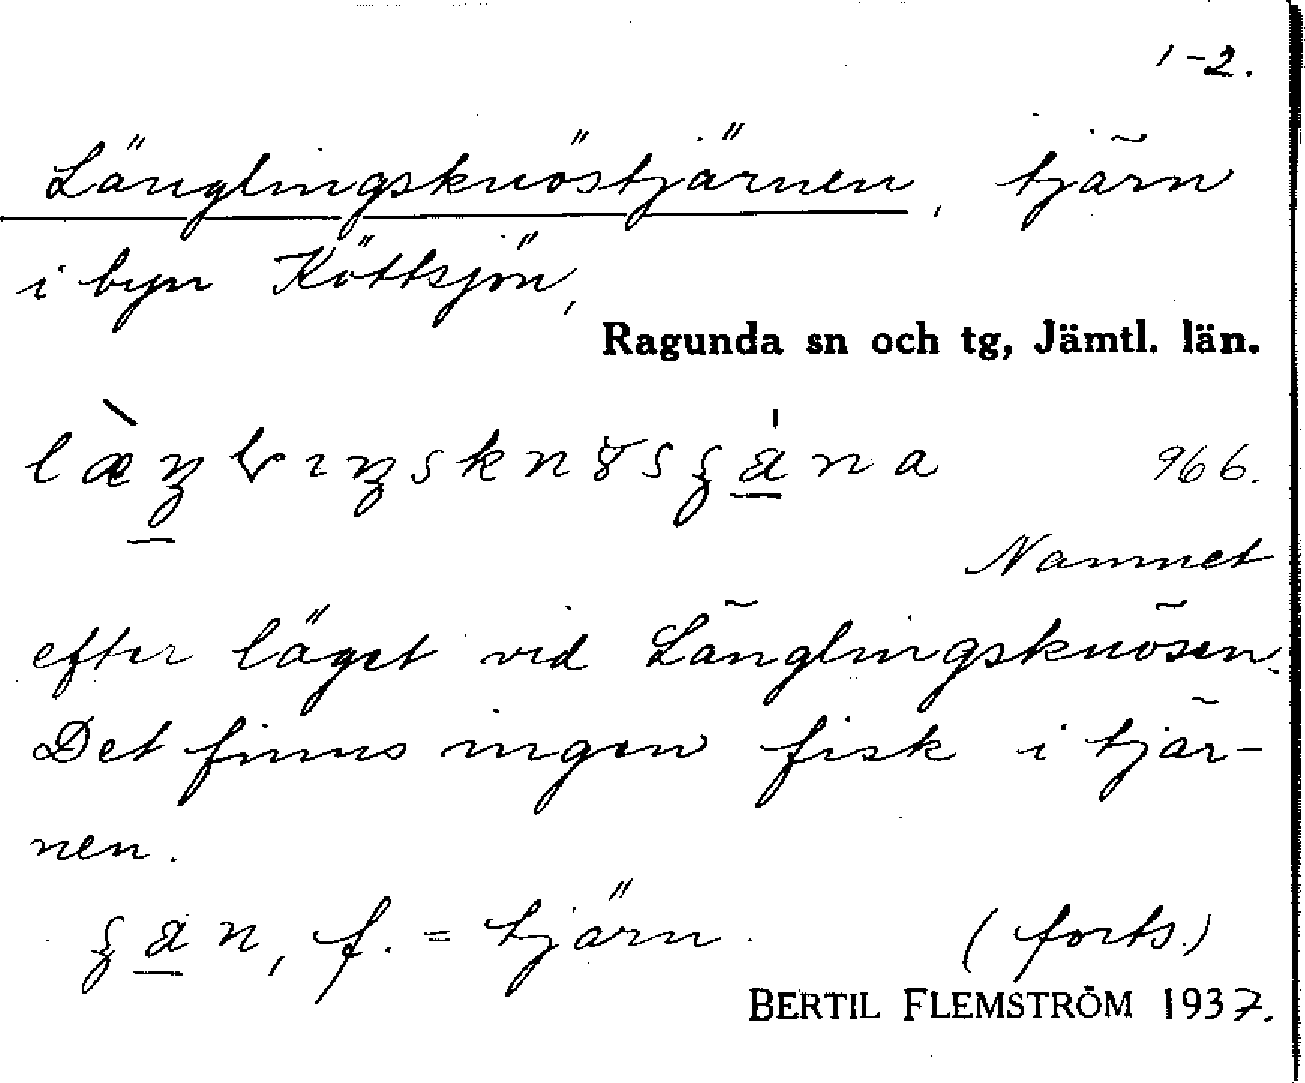 1-2.
Länglingsknöstjärnen, tjärn
i byn Köttsjön,
Ragunda sn och tg, Jämtl. län.
966.
Namnet
efter läget vid Länglingsknösen.
Det finns ingen fisk i tjär-
nen.
f. = tjärn (forts.)
BERTIL FLEMSTRÖM 1937.